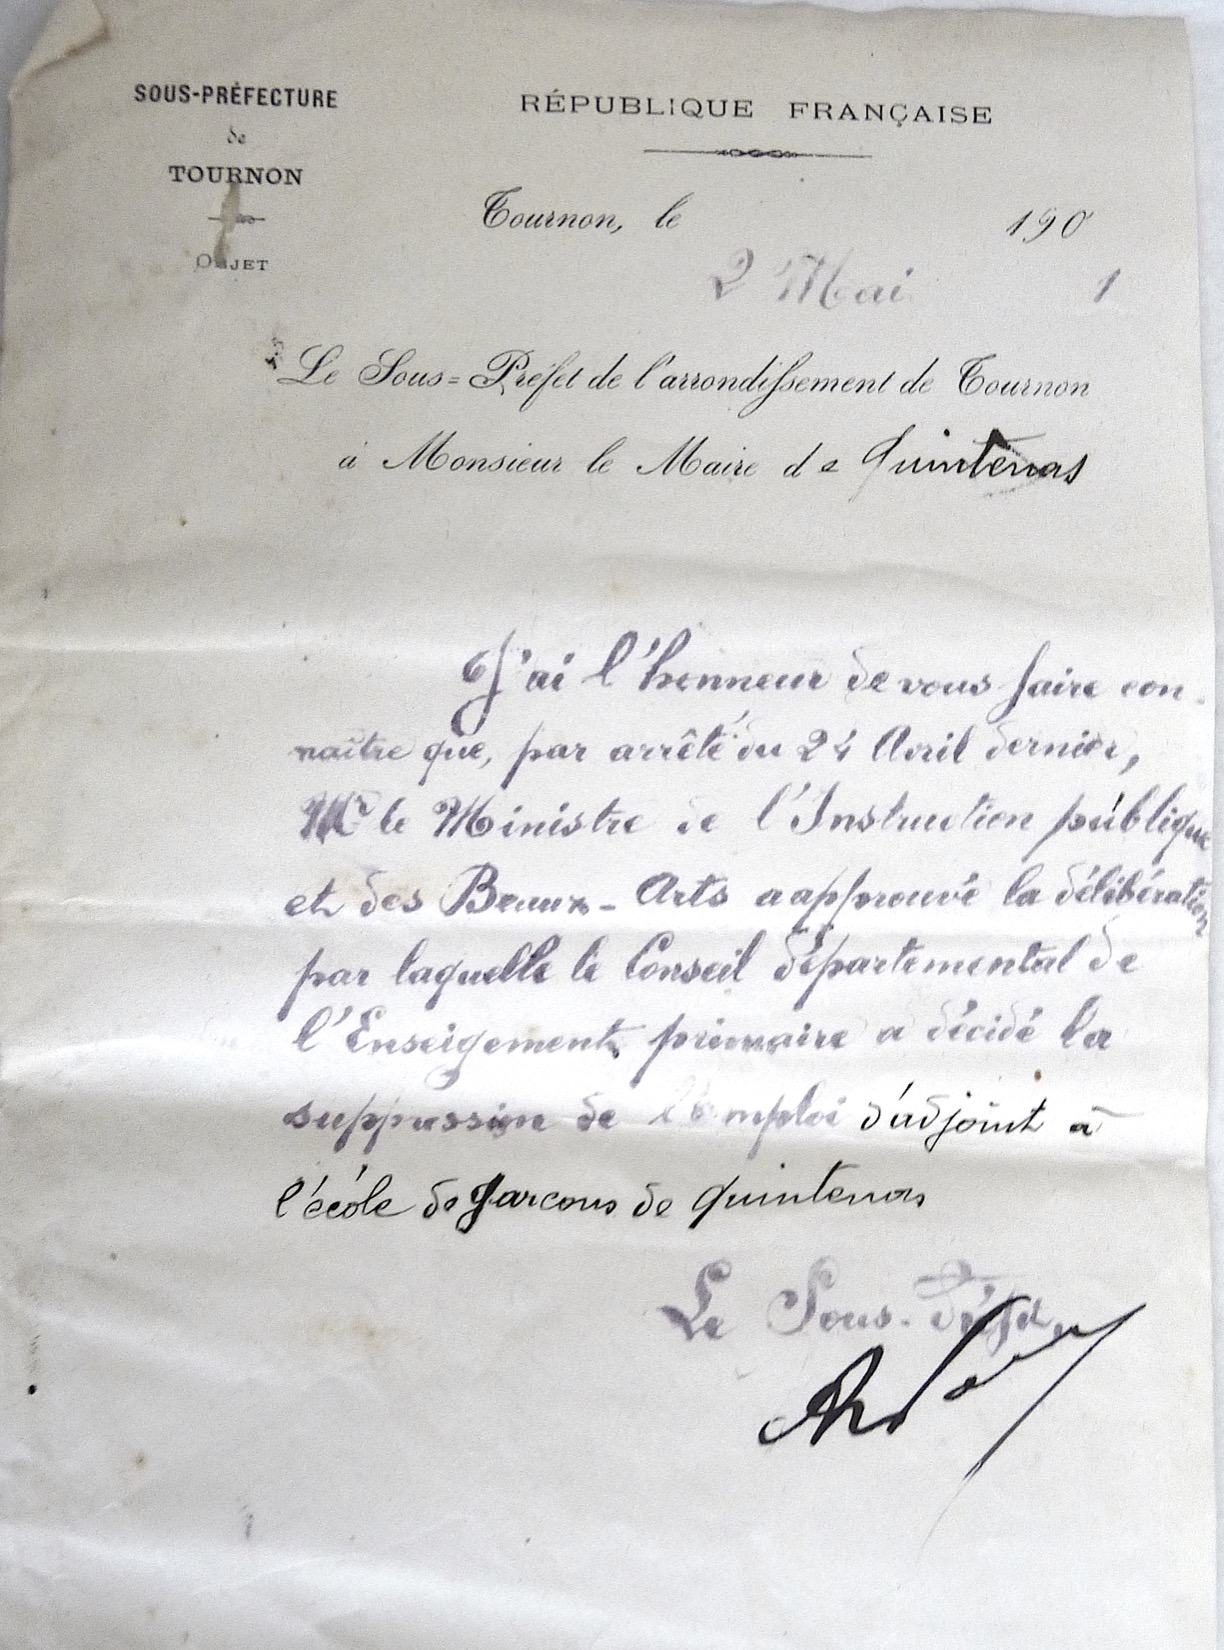 SOUS-PRÉFECTURE
de
TOURNON
OBJET
RÉPUBLIQUE FRANÇAISE
Tournon, le 190
2 Mai 1
Le Sous=Préfet de l'arrondissement de Tournon
à Monsieur le Maire de Quintenas
J'ai l'honneur de vous faire con-
naître que, par arrêté du 24 Avril dernier,
Mr le Ministre de l'Instruction publique
et des Beaux-Arts a approuvé la délibération
par laquelle le Conseil départemental de
l'Enseigement primaire a décidé la
suppression de l'emploi d'adjoint à
l'école de garcons de Quintenas
Le Sous-Préfet,